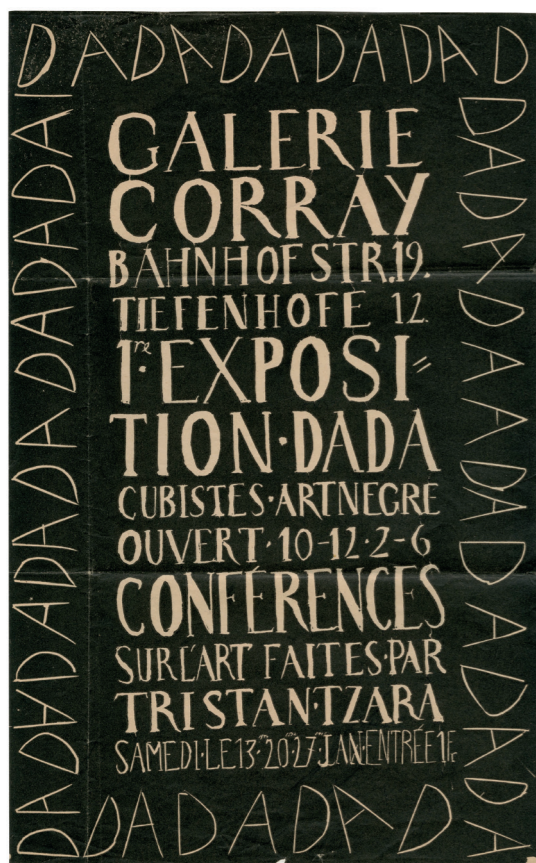 DADADADADAD
GALERIE
CORRAY
BAHNHOFSTR.19.
TIEFENHOFE 12.
1re·EXPOSI=
TION·DADA
CUBISTES·ARTNEGRE
OUVERT·10-12·2-6
CONFÉRENCES
SUR L'ART FAITES·PAR
TRISTAN·TZARA
SAMEDI·LE 13·20·27·JAN·ENTRÉE 1Fr
DADADADAD
DADADADADADADADADA
DADADAADADADADA